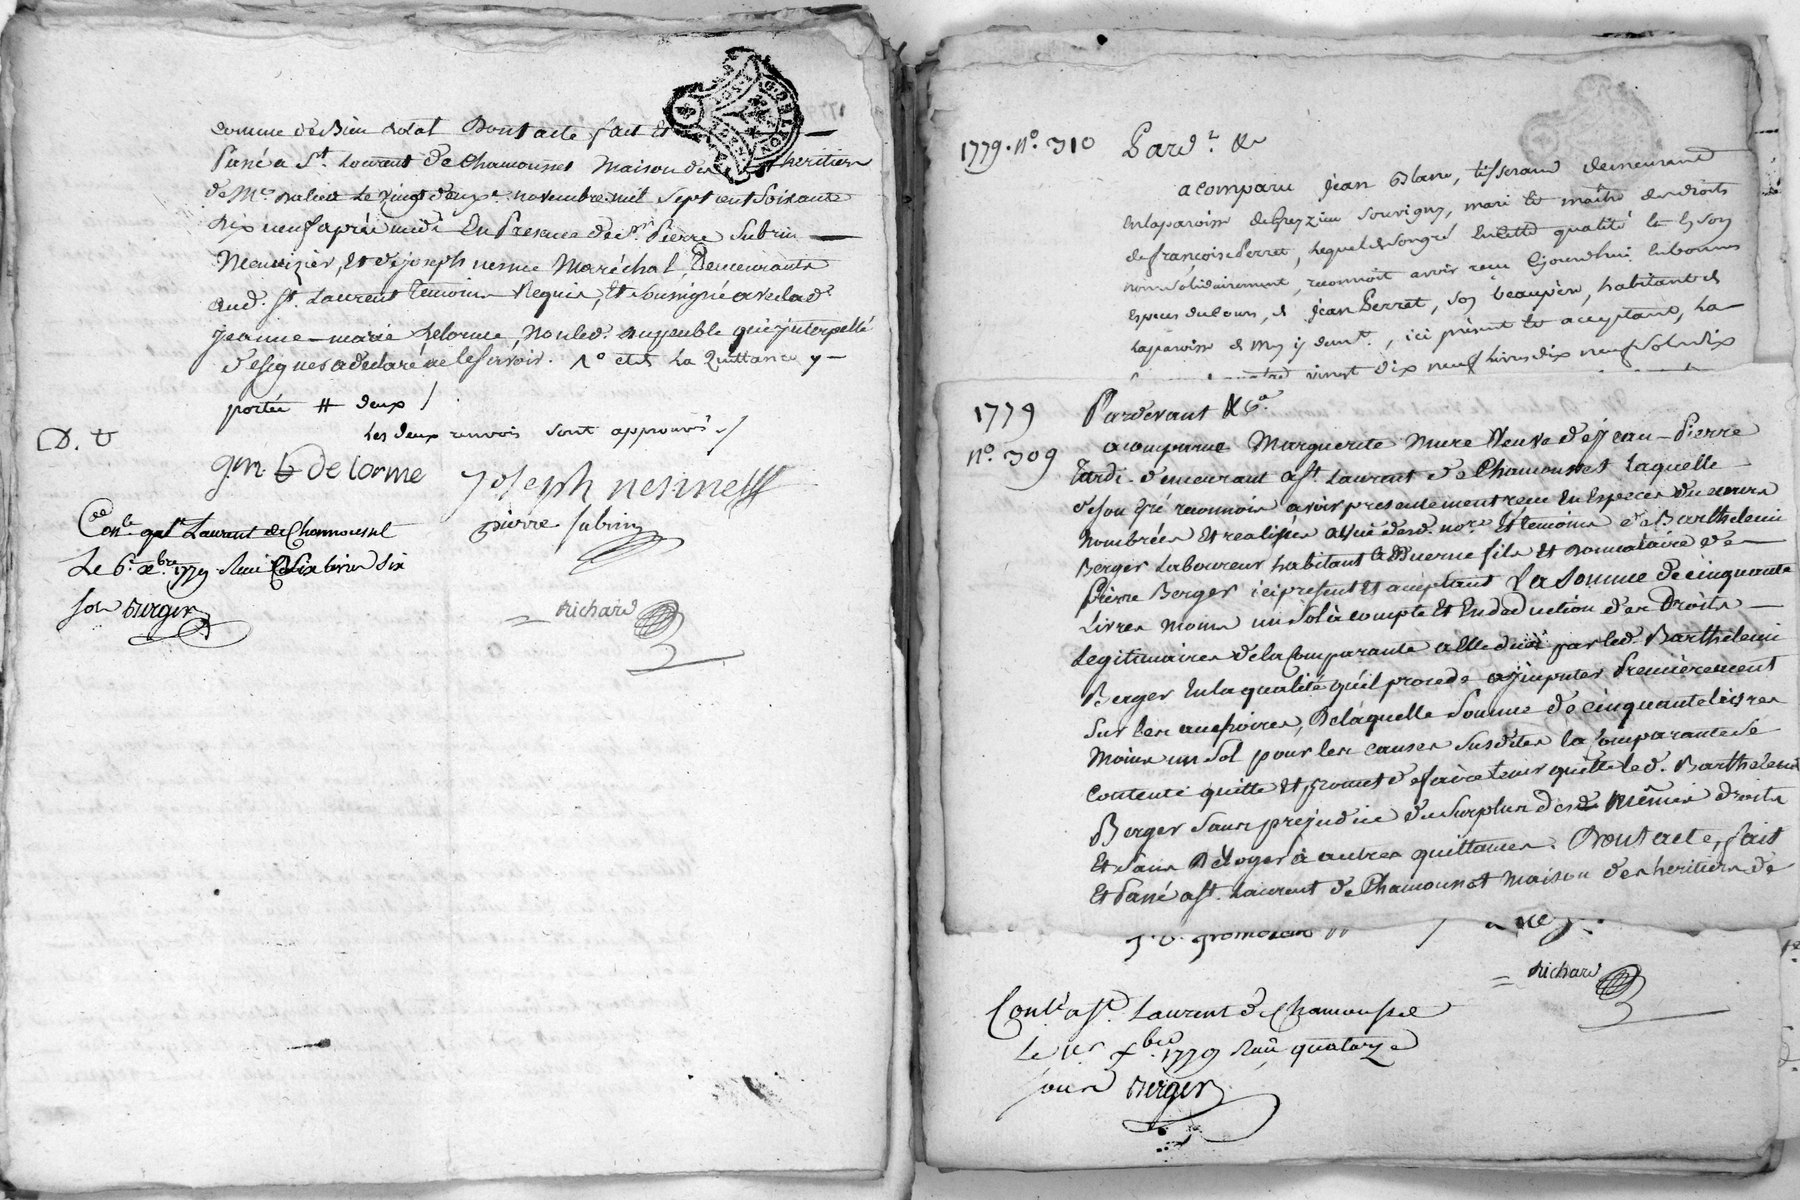 comme de Bien Dont acte fait et
Passé a St. Laurent de Chamousset Maison des heritiers
de Me. le vingt deuxe. novembre mil sept cent soixante
dix neuf après midi En Presence de Sr. Pierre Subrin
Menuizier, et de joseph nesme Maréchal, Demeurants
aud. St. Laurent temoins Requis, et soussigné avec lad.
jeanne-marie Delorme, non led. qui interpellé
de signer a declaré ne le savoir. la Quittance y
portée # deux /
Les deux renvois sont approuvés /
D. t
de lorme
joseph nesme
pierre subrin
Richard
Conlé. a St. Laurent de Chamousset
Le 6e. xbre. 1779 Reçu six livres dix
sols Berger
1779. no. 310 Pard.t &c
a comparu jean Blanc, tisserand demeurant
en la paroisse de Grezieu Souvigny, mari et maître des droits
de françoise Perret, lequel de son gré en cette qualité et en son
nom solidairement, reconnoit avoir reçu ce jourd'hui en bonnes
especes du cours, de jean Perret, son beaupère, habitant de
la paroisse de ici présent et acceptant, la
quatre vingt dix neuf livres dix neuf sols dix
1779 Pardevant &ca.
no. 309 a comparue Marguerite Mure Veuve de Jean-Pierre
Tardi demeurant a St. Laurent de Chamousset laquelle
de son gré reconnois avoir presentement reçu en Especes du cours
Nombrées et realisées a vue desd. nore. et temoins de Barthelemi
Berger Laboureur habitant a Duerne fils et donnataire de
Pierre Berger ici present et acceptant La somme de cinquante
Livres moins un sol à compte et en deduction des Droits
Legitimaires de la Comparante a elle dus par led. Barthelemi
Berger en la qualité qu'il procede a imputer Premièrement
sur les accessoires, De laquelle somme de cinquante livres
Moins un sol pour les causes susdites la Comparante se
contente quitte et promet de faire tenir quitte led. Barthélemi
Berger sans prejudice du surplus desd. Mêmes droits
et sans Déroger à autres quittances. Dont acte, fait
et Passé a St. Laurent de Chamousset maison des heritiers de
Richard
Conlé a St. Laurent de Chamousset
Le 1er xbre 1779 Reçu quatorze
sous Berger